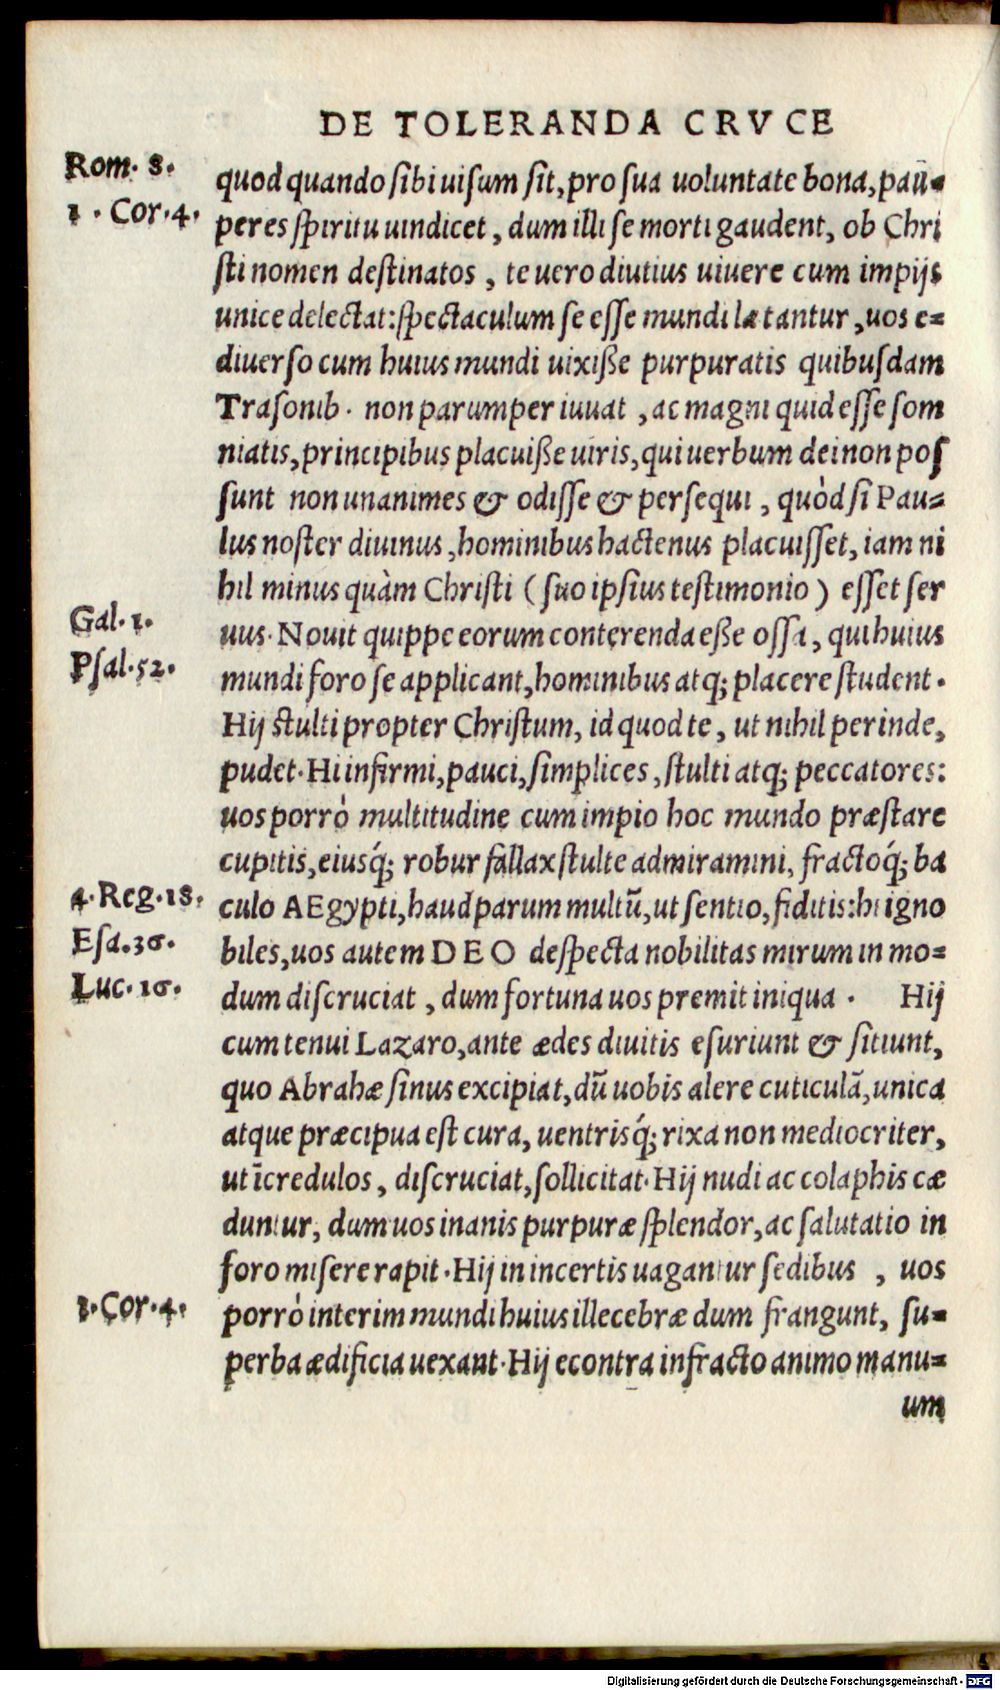 DE TOLERANDA CRVCE
Rom. 8.
1. Cor. 4.
quod quando sibi uisum sit, pro sua uoluntate bona, pau-
peres spiritu uindicet, dum illi se morti gaudent, ob Chri
sti nomen destinatos, te uero diutius uiuere cum impijs
unice delectat: spectaculum se esse mundi lætantur, uos e-
diuerso cum huius mundi uixiße purpuratis quibusdam
Trasonib. non parumper iuuat, ac magni quid esse som
niatis, principibus placuiße uiris, qui uerbum dei non pos
sunt non unanimes & odisse & persequi, quòd si Pau-
lus noster diuinus, hominibus hactenus placuisset, iam ni
hil minus quàm Christi (suo ipsius testimonio) esset ser
Gal. 1.
uus. Nouit quippe eorum conterenda eße ossa, qui huius
Psal. 52.
mundi foro se applicant, hominibus atq; placere student.
Hij stulti propter Christum, id quod te, ut nihil perinde,
pudet. Hi infirmi, pauci, simplices, stulti atq; peccatores:
uos porrò multitudine cum impio hoc mundo præstare
cupitis, eiusq́; robur fallax stulte admiramini, fractoq́; ba
4. Reg. 18.
culo AEgypti, haud parum multū, ut sentio, fiditis: hi igno
Esa. 36.
biles, uos autem DEO despecta nobilitas mirum in mo-
Luc. 16.
dum discruciat, dum fortuna uos premit iniqua. Hij
cum tenui Lazaro, ante ædes diuitis esuriunt & sitiunt,
quo Abrahæ sinus excipiat, dū uobis alere cuticulā, unica
atque præcipua est cura, uentrisq́; rixa non mediocriter,
ut īcredulos, discruciat, sollicitat. Hij nudi ac colaphis cæ
duntur, dum uos inanis purpuræ splendor, ac salutatio in
foro misere rapit. Hij in incertis uagantur sedibus, uos
1. Cor. 4.
porrò interim mundi huius illecebræ dum frangunt, su-
perba ædificia uexant. Hij econtra infracto animo manu-
um
Digitalisierung gefördert durch die Deutsche Forschungsgemeinschaft - DFG